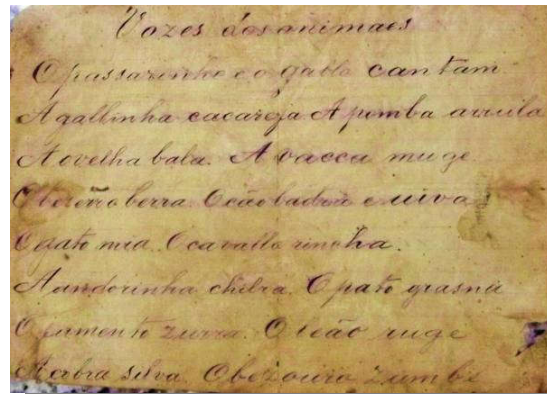 Vozes dos animaes
O passarinho e o gallo cantam
A gallinha cacareja A pomba arrula
A ovelha bala. A vacca muge
O bezerro berra. O cão ladra e uiva
O gato mia. O cavallo rincha.
A andorinha chilra. O pato grasna
O jumento zurra. O leão ruge
A cobra silva. O bezouro zumbe